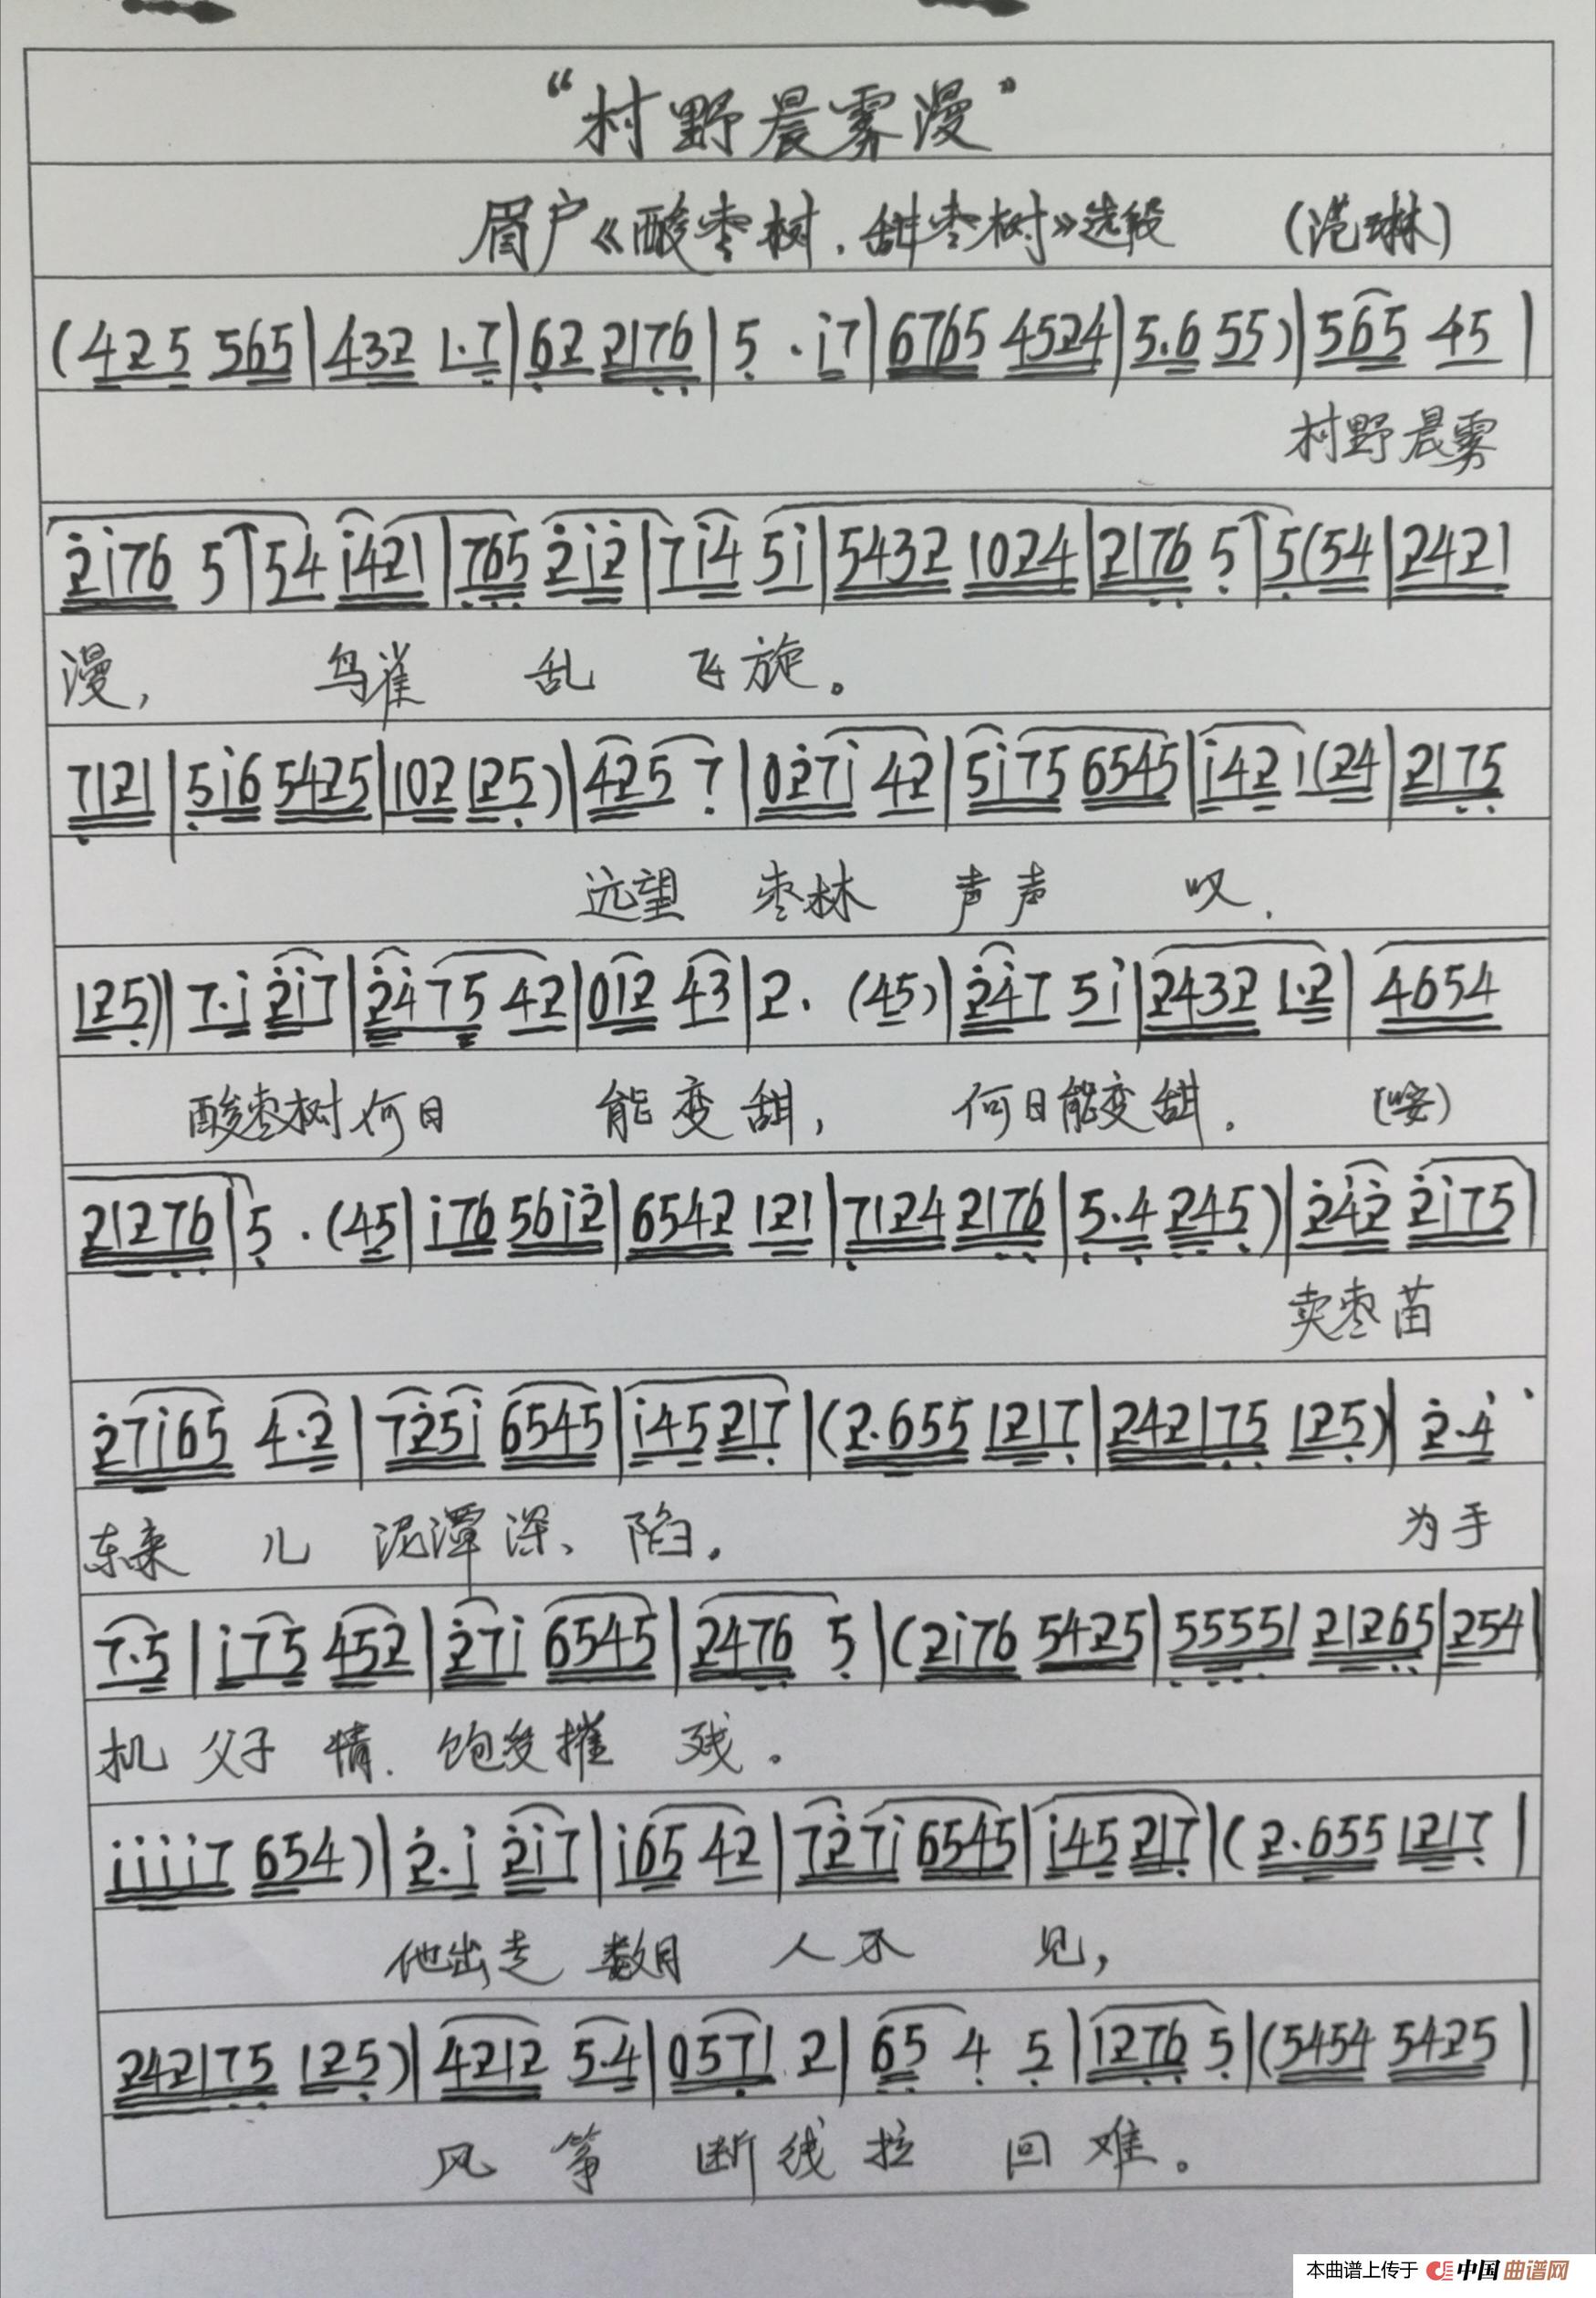 “村野晨雾漫”
眉户《酸枣树.甜枣树》选段 (范琳)
(425 565|432 1·7|62 2176|5 ·i7|6765 4524|5.6 55)|565 45|
村野晨雾
2i76 5|54 i421|765 2i2|7i4 5i|5432 1024|2176 5|5(54|2421
漫, 鸟雀 乱 飞旋。
7121|5i6 5425|102 125)|425 7|027i 42|5i75 6545|i42 1(24|2175
远望 枣林 声声 叹.
125)|7·i 2i7|2475 42|012 43|2. (45)|247 5i|2432 1·2|4654
酸枣树何日 能变甜, 何日能变甜. (唉)
21276|5 .(45|i76 56i2|6542 121|7124 2176|5.4 245)|242 2i75|
卖枣苗
27i65 4·2|725i 6545|i45217|(2.655 1217|242175 125)|2.4
东来 儿 泥潭深、陷. 为手
7·5|i75 452|27i 6545|2476 5|(2i76 5425|55551 21265|254|
机 父子 情. 饱受摧 残.
iiii7 654)|2.i 2i7|i65 42|727i 6545|i45 217|(2.655 1217|
他出走 数月 人不 见,
242175 125)|4212 5·4|0571 2|65 4 5|1276 5|(5454 5425|
风 筝 断线拉 回难。
本曲谱上传于 中国曲谱网